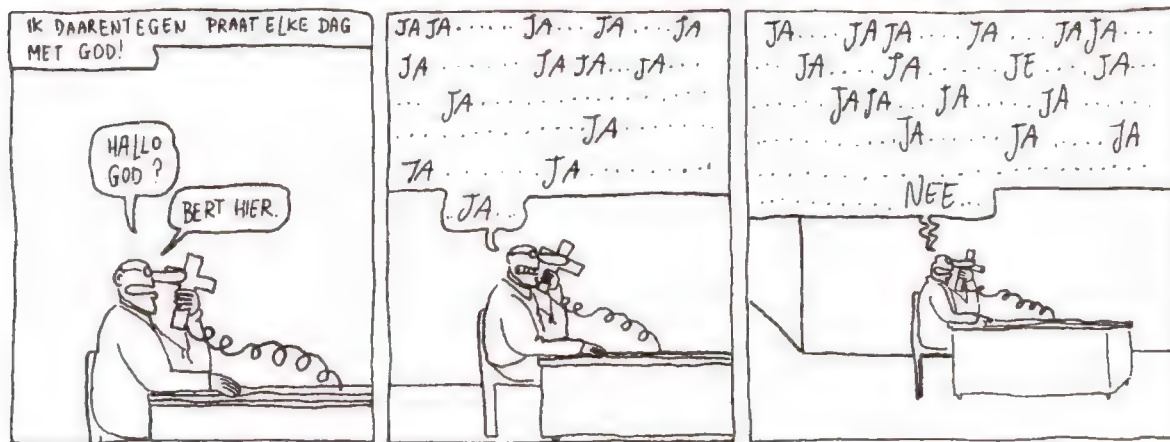 IK DAARENTEGEN PRAAT ELKE DAG
MET GOD!
HALLO
GOD?
BERT HIER.
JA JA...... JA.... JA.... JA
JA ........ JA JA... JA....
... JA................
................ JA.......
JA.......... JA...........
..JA...
JA.... JA JA..... JA ..... JA JA...
... JA..... JA....... JE .... JA...
....... JA JA.... JA ...... JA .....
............ JA...... JA ...... JA
..............................
............ NEE...